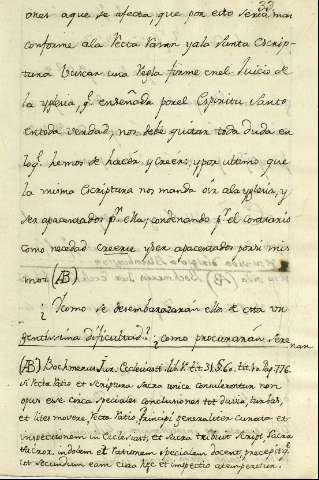 33
ones aque se afecta, que por esto seria mas
conforme ala recta razon yala Santa Escrip-
tura buscar una regla firme enel Juicio de
la yglesia, q.e enseñada porel Espiritu Santo
entoda verdad, nos debe quitar toda duda en
loq.e hemos de hacer, y creer; y por ultimo que
la misma Escriptura nos manda oir ala yglesia, y
ser apacentados p.r ella; condenando p.r el contrario
como necedad creerse yser apacentados porsi mis
mos. (AB)
¿Y como se desembarazarán ellos de esta ur
gentisima dificultad? ¿como procurarán
(AB) Bochmerus Jur. Ecclesiast. lib. tit. 31. §. 60. pag. 776.
si recta ratio et scriptura sacra unice consulerentur non
opus esse circa speciales conclusiones tot dubia, turbas,
et lites movere, recta ratio Principi generaliter curata et
inspectionem in Ecclesiast, et sacra tribuit script. sacra
indolem et rationem specialem docent,
ut secundum eam cura hæc et inspectio attemperetur.